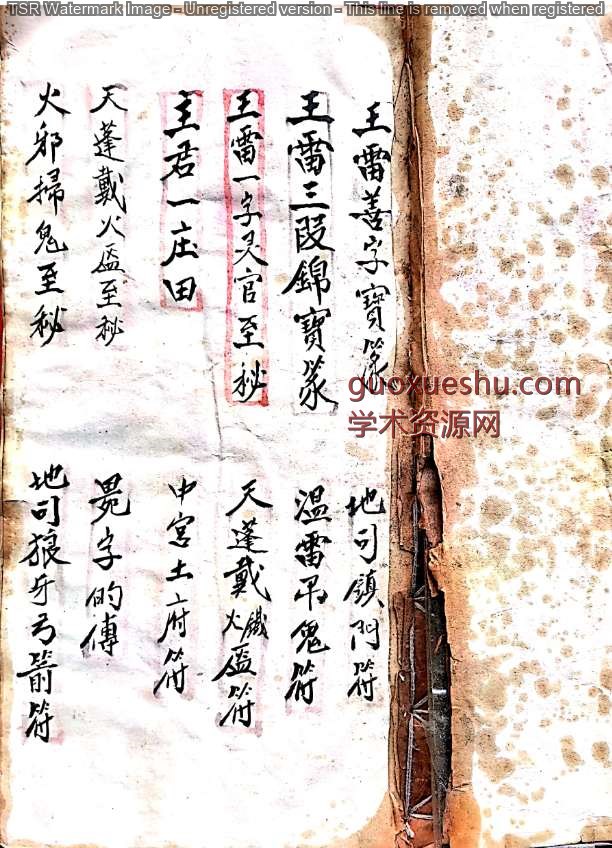 TSR Watermark Image - Unregistered version - This line is removed when registered
王雷善字寶篆
地司鎮門符
王雷三段錦寶篆
溫雷吊鬼符
王雷一字灵官至秘
天蓬戴火鐵盔符
主君一庄田
中宮土府符
天蓬戴火盔至秘
字的傳
火邪掃鬼至秘
地司狼牙弓箭符
guoxueshu.com
学术资源网